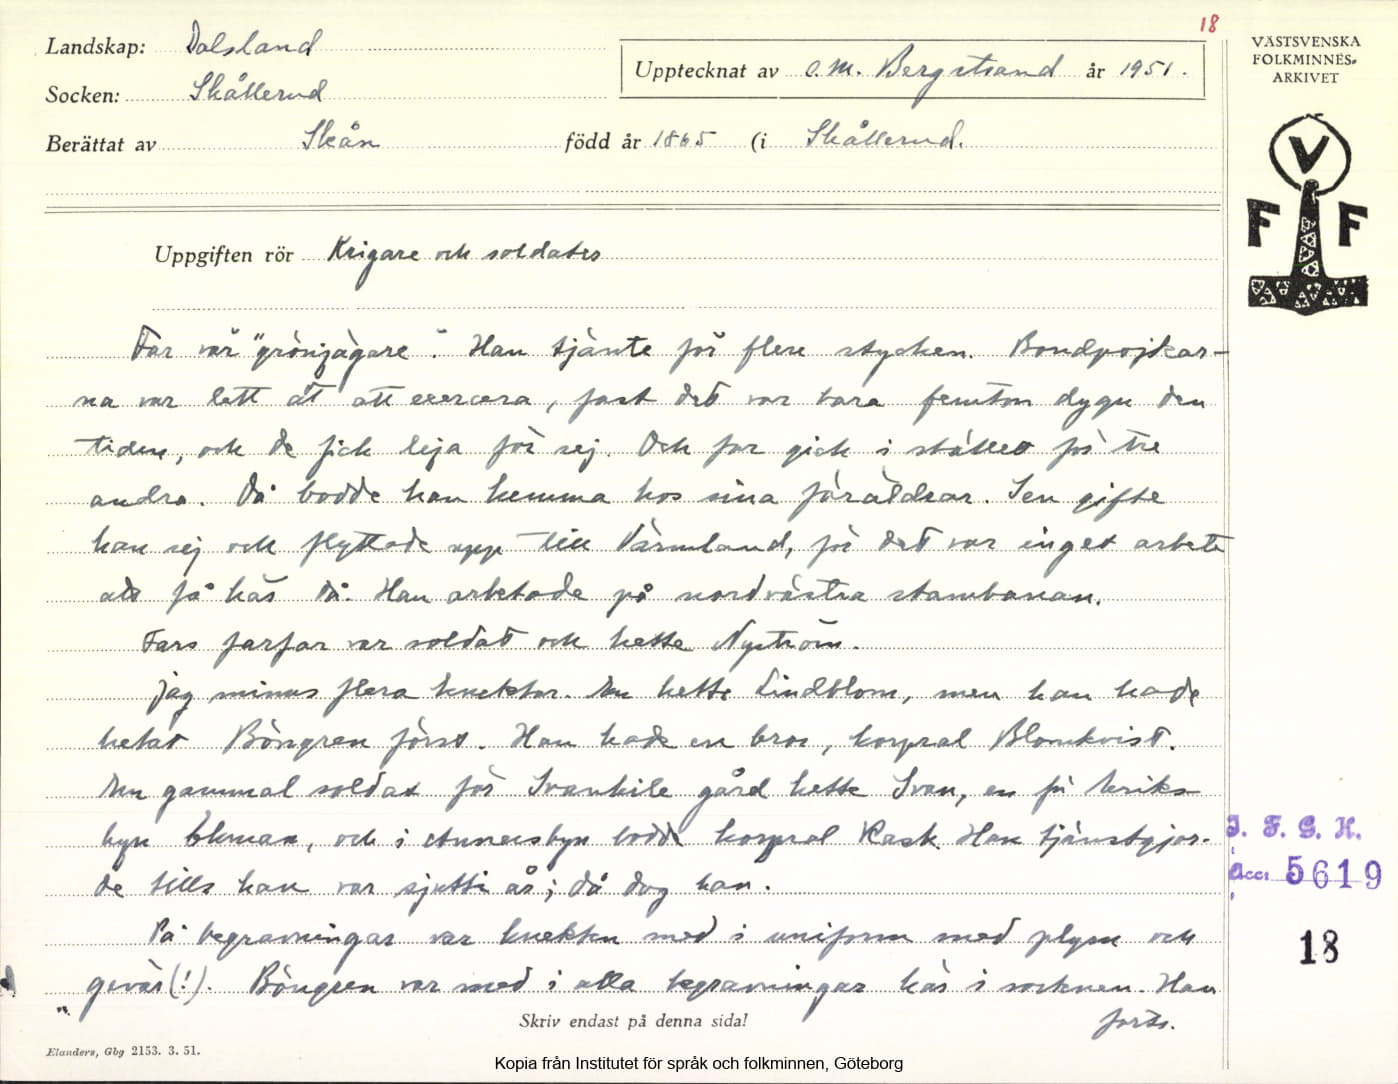 18
Landskap: Dalsland
Upptecknat av C. M. Bergstrand år 1951.
VÄSTSVENSKA
FOLKMINNES-
ARKIVET
Socken: Skållerud
Berättat av Skån född år 1865 (i Skållerud.
V
F F
Uppgiften rör Krigare och soldater
Far var "grönjägare". Han tjänte för flere stycken. Bondpojkar-
na var lett åt att exercera, fast det var bara femton dygn den
tiden, och de fick leja för sej. Och far gick i stället för tre
andra. Då bodde han hemma hos sina föräldrar. Sen gifte
han sej och flyttade upp till Värmland, för det var inget arbete
att få här då. Han arbetade på nordvästra stambanan.
Fars farfar var soldat och hette Nyström.
Jag minns flera knektar. En hette Lindblom, men han hade
hetat Böngren först. Han hade en bror, korpral Blomkvist.
En gammal soldat för Svankile gård hette Svan, en på Eriks
byn Ekman, och i Annersbyn bodde korpral Rask. Han tjänstgjor-
de tills han var sjutti år; då dog han.
På begravningar var knekten med i uniform med plym och
gevär(!). Böngren var med i alla begravningar här i socknen. Han
forts.
I. F. G. H.
Acc. 5619
18
Skriv endast på denna sida!
Elanders, Gbg 2153. 3. 51.
Kopia från Institutet för språk och folkminnen, Göteborg